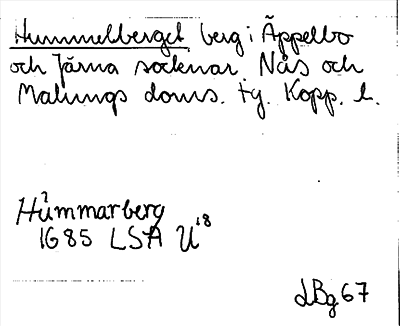 Hummelberget berg i Äppelbo
och Järna socknar. Nås och
Malungs doms. tg. Kopp. l.
Hummarberg
1685 LSA U18
LBg 67